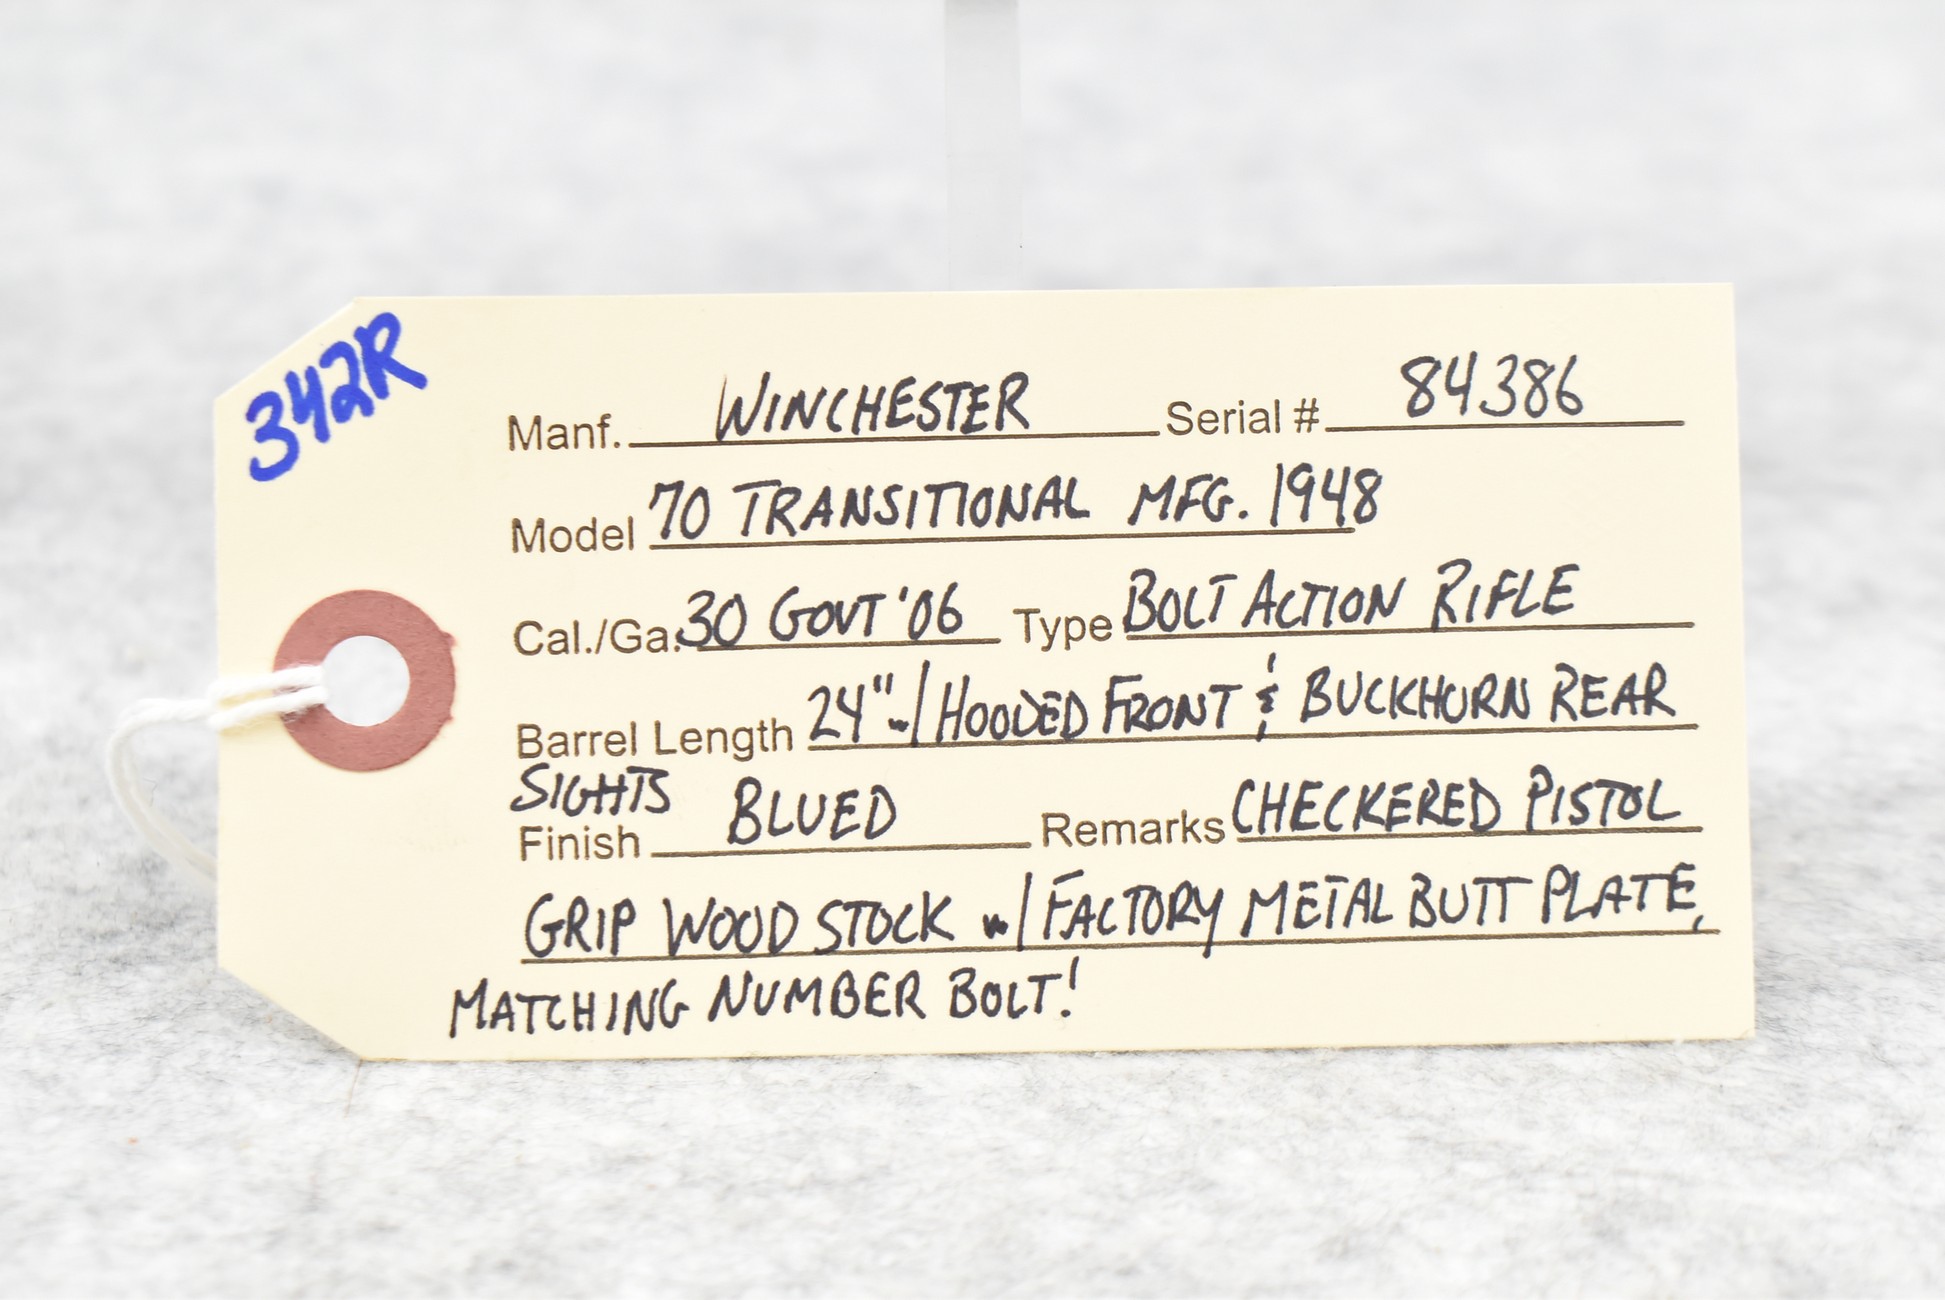 342R
Manf. WINCHESTER Serial # 84386
Model 70 TRANSITIONAL MFG. 1948
Cal./Ga. 30 GOVT '06 Type BOLT ACTION RIFLE
Barrel Length 24" w/ HOODED FRONT & BUCKHORN REAR
SIGHTS
Finish BLUED Remarks CHECKERED PISTOL
GRIP WOOD STOCK w/ FACTORY METAL BUTT PLATE,
MATCHING NUMBER BOLT!